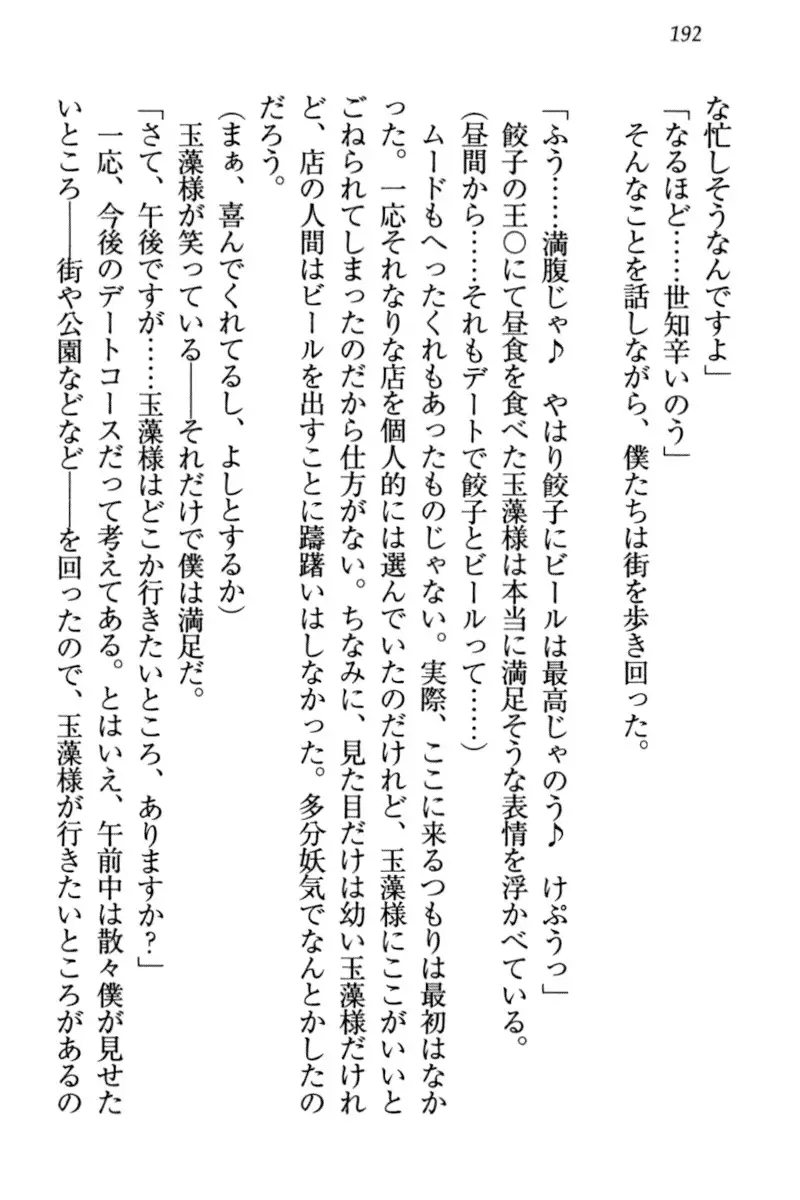 192
な忙しそうなんですよ」
「なるほど……世知辛いのう」
そんなことを話しながら、僕たちは街を歩き回った。
「ふう……満腹じゃ♪　やはり餃子にビールは最高じゃのう♪　けぷうっ」
餃子の王〇にて昼食を食べた玉藻様は本当に満足そうな表情を浮かべている。
(昼間から……それもデートで餃子とビールって……)
ムードもへったくれもあったものじゃない。実際、ここに来るつもりは最初はなか
った。一応それなりな店を個人的には選んでいたのだけれど、玉藻様にここがいいと
ごねられてしまったのだから仕方がない。ちなみに、見た目だけは幼い玉藻様だけれ
ど、店の人間はビールを出すことに躊躇いはしなかった。多分妖気でなんとかしたの
だろう。
(まぁ、喜んでくれてるし、よしとするか)
玉藻様が笑っている――それだけで僕は満足だ。
「さて、午後ですが……玉藻様はどこか行きたいところ、ありますか？」
一応、今後のデートコースだって考えてある。とはいえ、午前中は散々僕が見せた
いところ――街や公園などなど――を回ったので、玉藻様が行きたいところがあるの